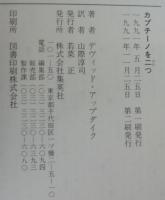 カプチーノを二つ
一九九一年 五月二五日 第一刷発行
一九九一年一一月二五日 第二刷発行
著者 デヴィッド・アップダイク
訳者 山際淳司
発行者 若菜 正
発行所 株式会社集英社
東京都千代田区一ツ橋二-五-一〇
電話 編集部
販売部
製作課
印刷所 図書印刷株式会社